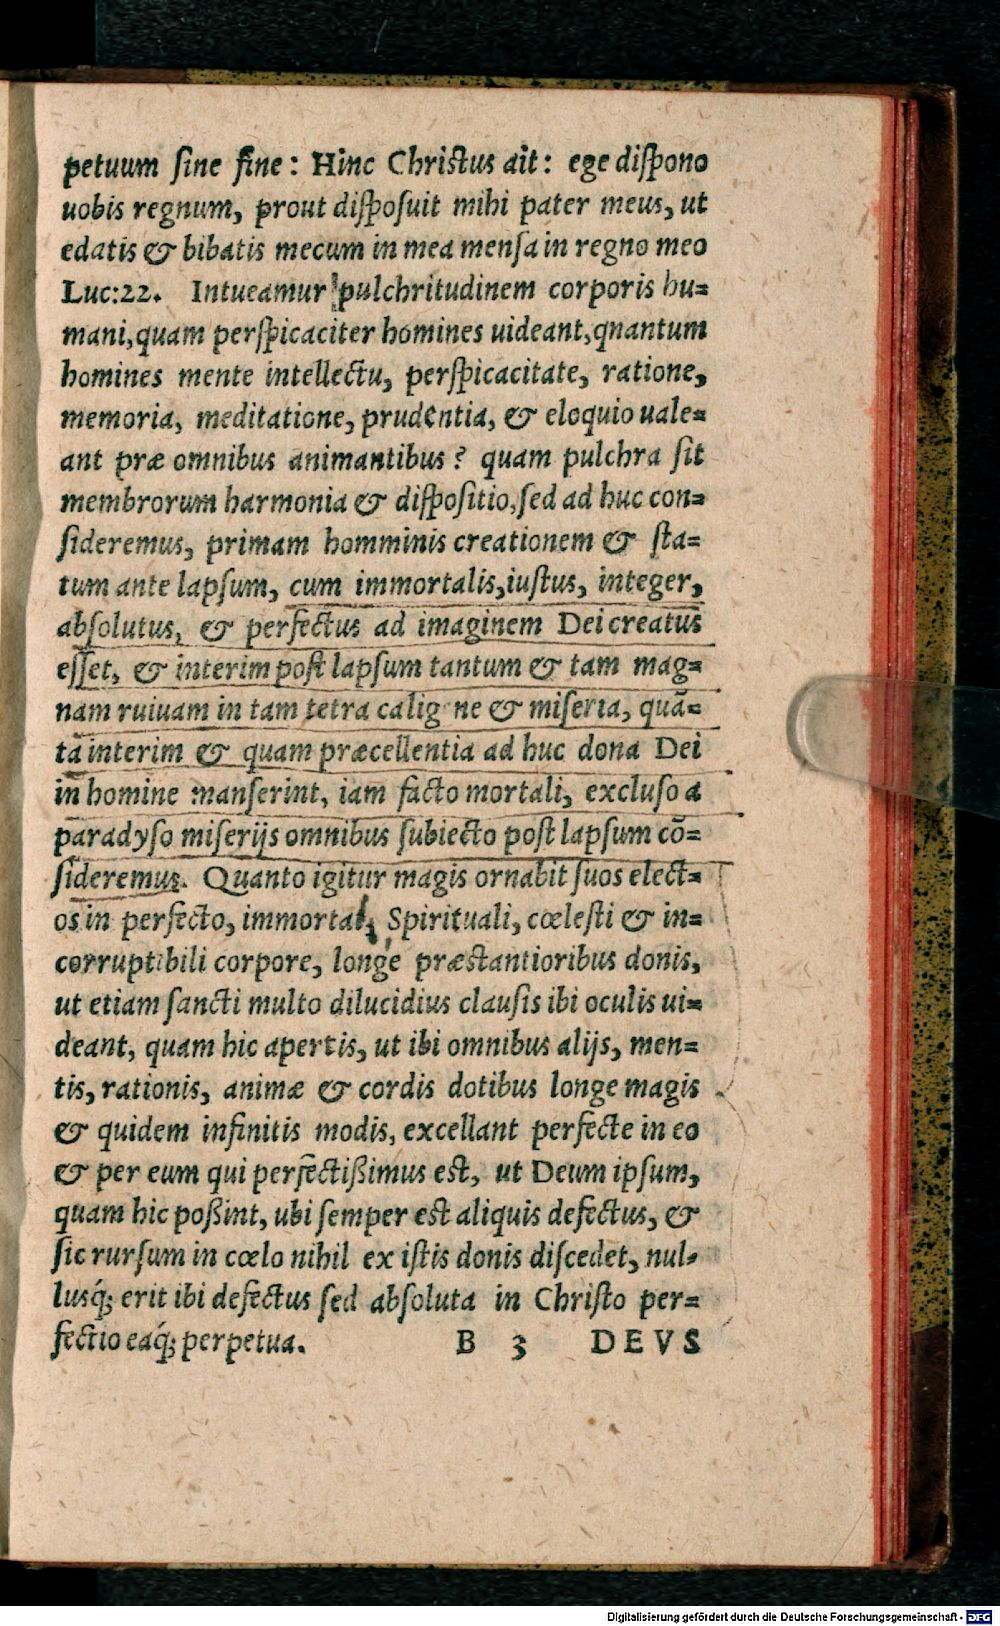 petuum sine fine: Hinc Christus ait: ege dispono
uobis regnum, prout disposuit mihi pater meus, ut
edatis & bibatis mecum in mea mensa in regno meo
Luc:22. Intueamur pulchritudinem corporis hu=
mani, quam perspicaciter homines uideant, qnantum
homines mente intellectu, perspicacitate, ratione,
memoria, meditatione, prudentia, & eloquio uale=
ant præ omnibus animantibus? quam pulchra sit
membrorum harmonia & dispositio, sed ad huc con=
sideremus, primam homminis creationem & sta=
tum ante lapsum, cum immortalis, iustus, integer,
absolutus, & perfectus ad imaginem Dei creatus
esset, & interim post lapsum tantum & tam mag=
nam ruiuam in tam tetra calig ne & miseria, quã=
tã interim & quam præcellentia ad huc dona Dei
in homine manserint, iam facto mortali, excluso a
paradyso miserijs omnibus subiecto post lapsum cõ=
sideremus. Quanto igitur magis ornabit suos elect=
os in perfecto, immortali, Spirituali, cœlesti & in=
corruptibili corpore, longe præstantioribus donis,
ut etiam sancti multo dilucidius clausis ibi oculis ui=
deant, quam hic apertis, ut ibi omnibus alijs, men=
tis, rationis, animæ & cordis dotibus longe magis
& quidem infinitis modis, excellant perfecte in eo
& per eum qui perfectißimus est, ut Deum ipsum,
quam hic poßint, ubi semper est aliquis defectus, &
sic rursum in cœlo nihil ex istis donis discedet, nul=
lusq́; erit ibi defectus sed absoluta in Christo per=
fectio eaq́; perpetua. B 3 DEVS
Digitalisierung gefördert durch die Deutsche Forschungsgemeinschaft - DFG